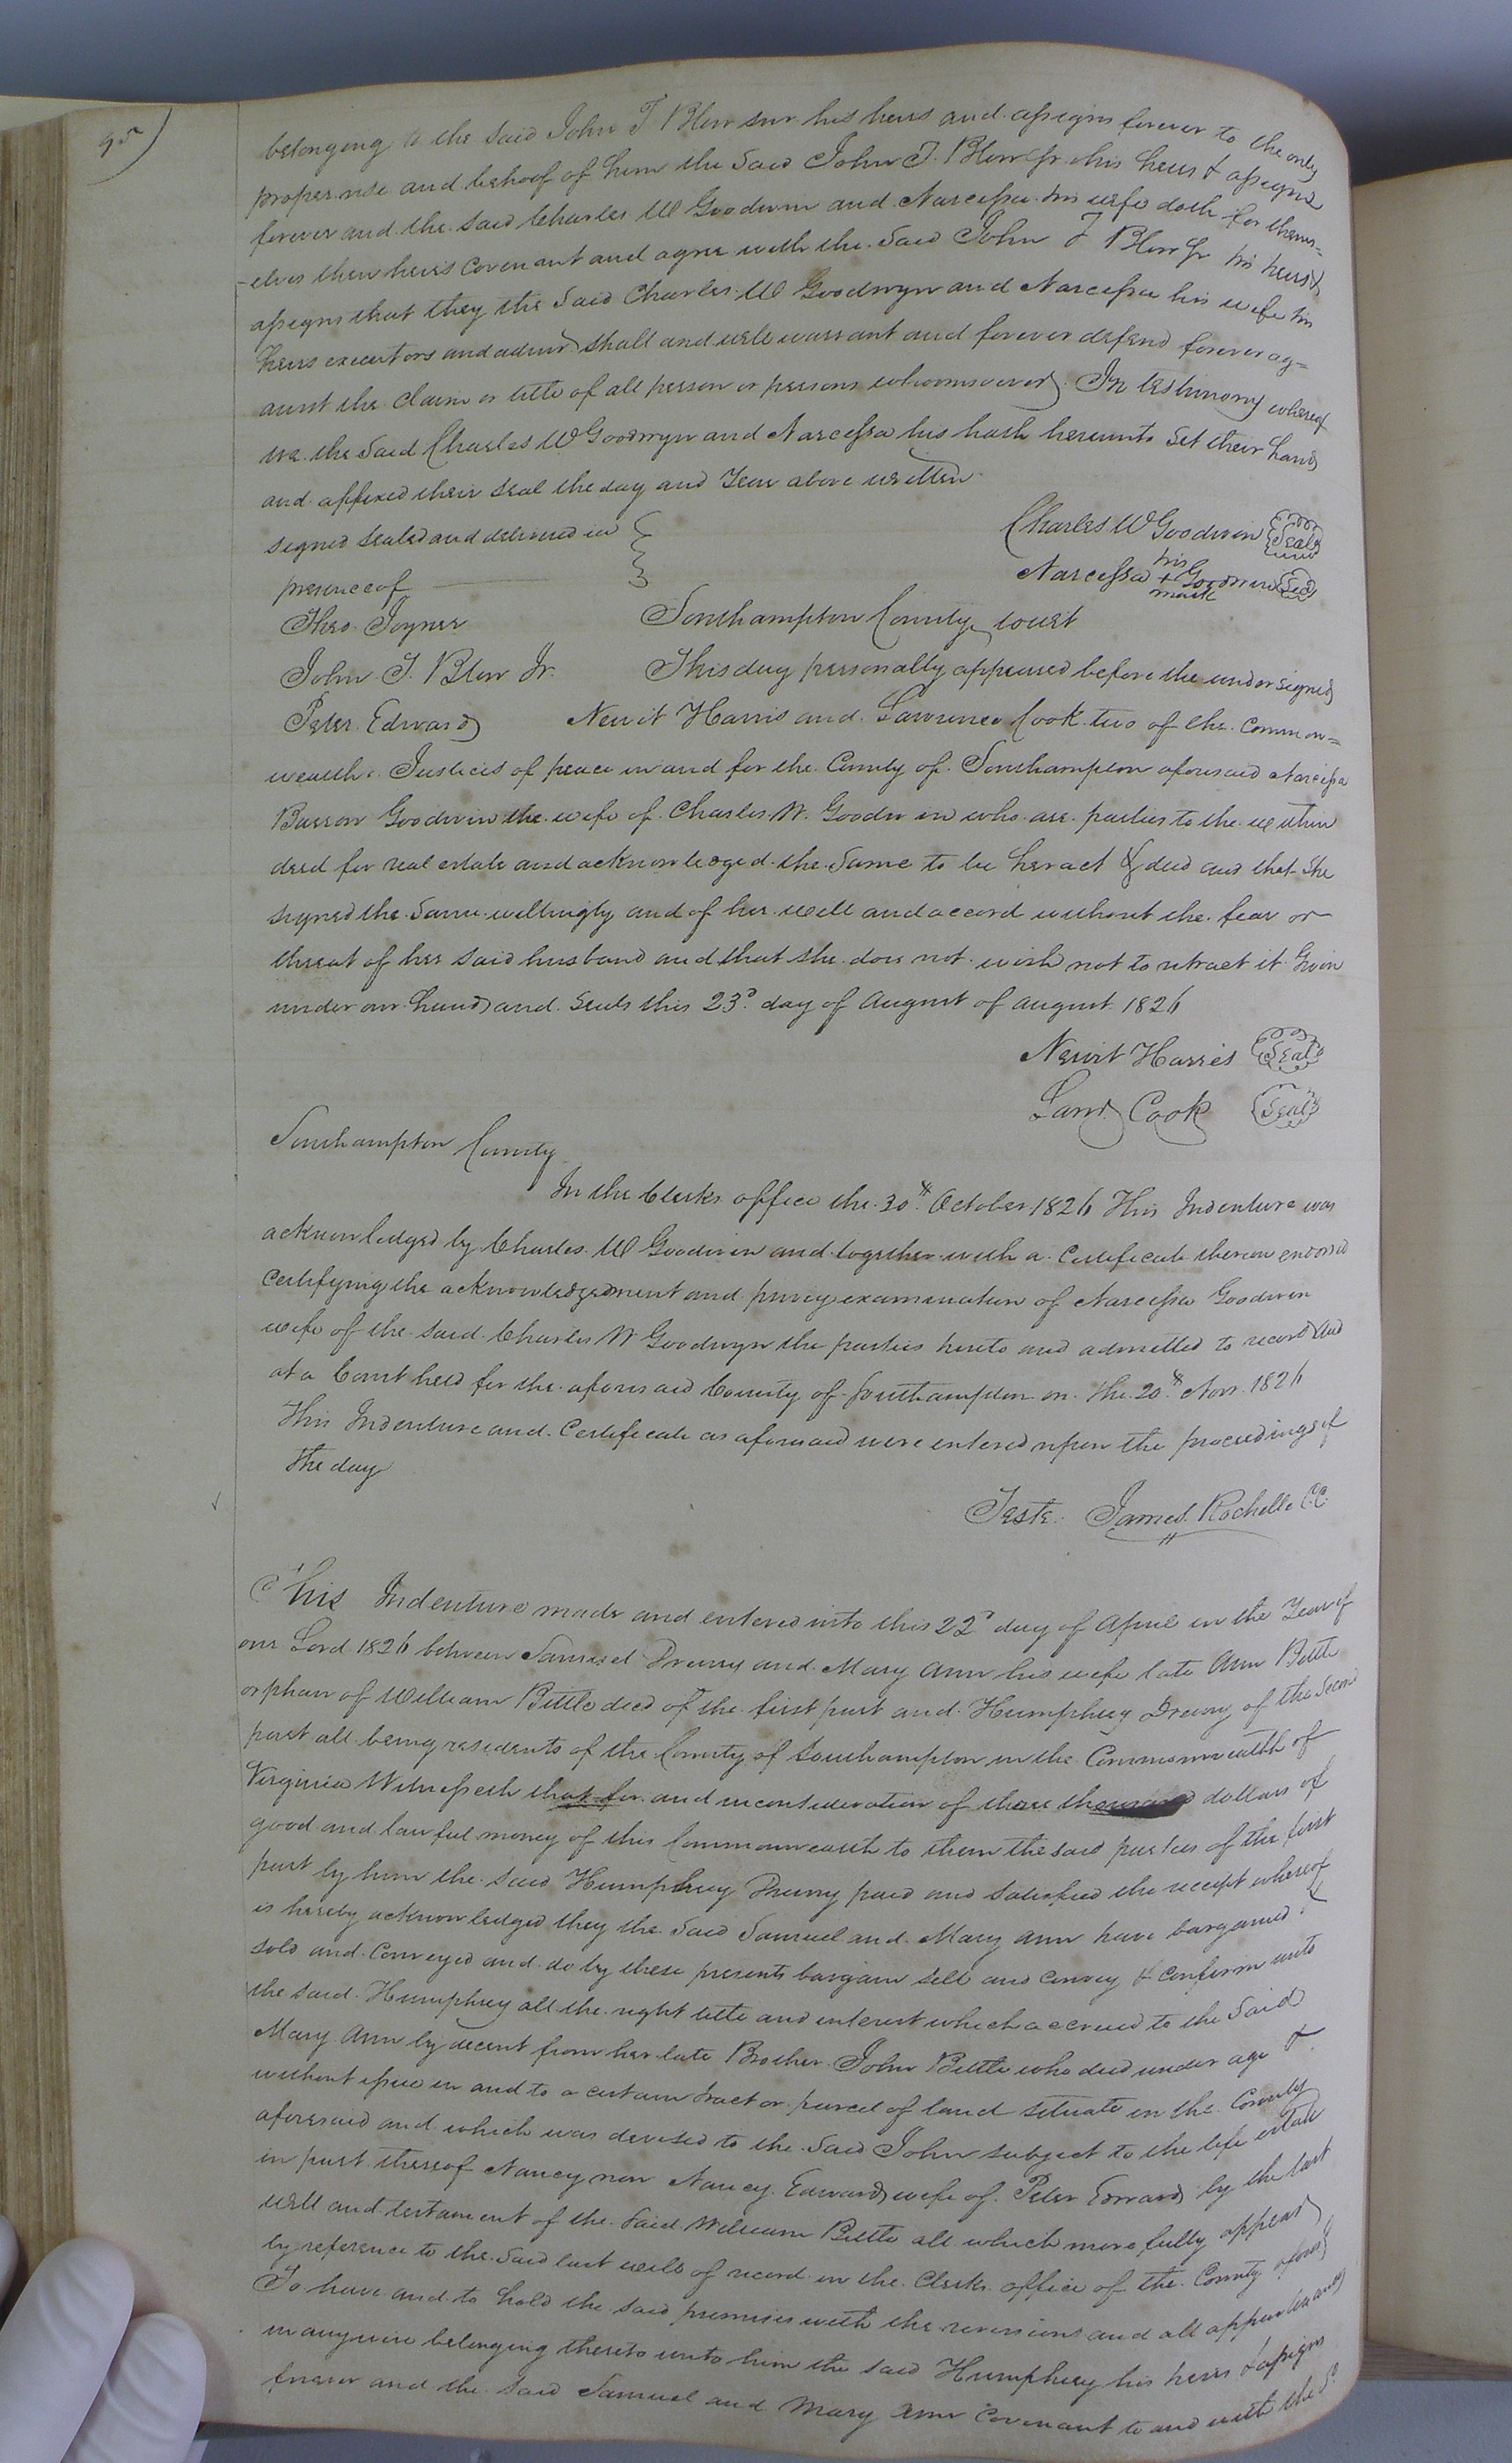 95)
belonging to the said John T Blow snr his heirs and assigns forever to the only
proper use and behoof of him the said John T. Blow Jr his heirs & assigns
forever and the said Charles W Goodwin and Narcissa his wife doth for thems=
-elves their heirs Covenant and agree with the said John T Blow Jr his heirs &
assigns that they the said Charles W Goodwyn and Narcissa his wife his
heirs executors and admrs shall and will warrant and forever defend forever ag=
ainst the claim or title of all person or persons whoomsoever. In testimony whereof
we the said Charles W Goodwyn and Narcissa his hath hereunto set their hands
and affixed their seal the day and Year above written
signed sealed and delivered in
presence of
Charles W Goodwin Seal
Narcissa his + mark Goodwin Seal
Theo. Joyner
Southampton County court
John T. Blow Jr.
This day personally appeared before the undersigned
Peter Edwards
Newit Harris and Lawrence Cook two of the common=
wealths Justices of peace in and for the County of Southampton aforesaid Narcissa
Barrow Goodwin the wife of Charles W. Goodwin who are parties to the within
deed for real estate and acknowledged the same to be her act & deed and that she
signed the same willingly and of her will and accord without the fear or
threat of her said husband and that she does not wish not to retract it Given
under our hands and seals this 23d day of August of august 1826
Newit Harris Seal
Lawr. Cook Seal
Southampton County
In the Clerks office the 30th October 1826 This Indenture was
acknowledged by Charles W Goodwin and together with a Certificate thereon endorsed
Certifying the acknowledgement and privy examination of Narcissa Goodwin
wife of the said Charles W Goodwyn the parties hereto and admitted to record And
at a Court held for the aforesaid County of Southampton on the 20th Nov. 1826
This Indenture and Certificate as aforesaid were entered upon the proceedings of
the day
Teste. James Rochelle C.C.
This Indenture made and entered into this 22d day of April in the Year of
our Lord 1826 between Samuel Drewry and Mary Ann his wife late Ann Bittle
orphan of William Bittle decd of the first part and Humphrey Drewry of the second
part all being residents of the County of Southampton in the Commonwealth of
Virginia Witnesseth that for and inconsideration of three thousand dollars of
good and lawful money of this Commonwealth to them the said parties of the first
part by him the said Humphrey Drewry paid and satisfied the receipt whereof
is hereby acknowledged they the said Samuel and Mary Ann have bargained &
sold and Conveyed and do by these presents bargain sell and convey & confirm unto
the said Humphrey all the right title and interest which accrued to the said
Mary Ann by decent from her late Brother John Bittle who died under age &
without issue in and to a certain tract or parcel of land situate in the County
aforesaid and which was devised to the said John subject to the life estate
in part thereof Nancy now Nancy Edwards wife of Peter Edwards by the last
will and testament of the said William Bittle all which more fully appears
by reference to the said last will of record in the Clerks office of the County aforesd
To have and to hold the said premises with the revisions and all appurtenances
in anywise belonging thereto unto him the said Humphrey his heirs & assigns
forever and the said Samuel and Mary Ann Covenant to and with the sd